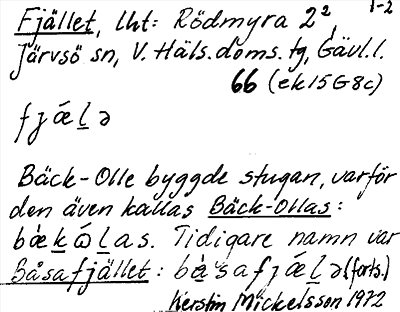 1-2
Fjället, lht: Rödmyra 2²,
Järvsö sn, V. Häls. doms. tg, Gävl. l.
66 (ek 15G8c)
fjǽl̠ə
Bäck-Olle byggde stugan, varför
den även kallas Bäck-Ollas:
bæ̀k̠ɷ́l̠as. Tidigare namn var
Båsafjället: bàsafjǽl̠ə (forts.)
Kerstin Mickelsson 1972